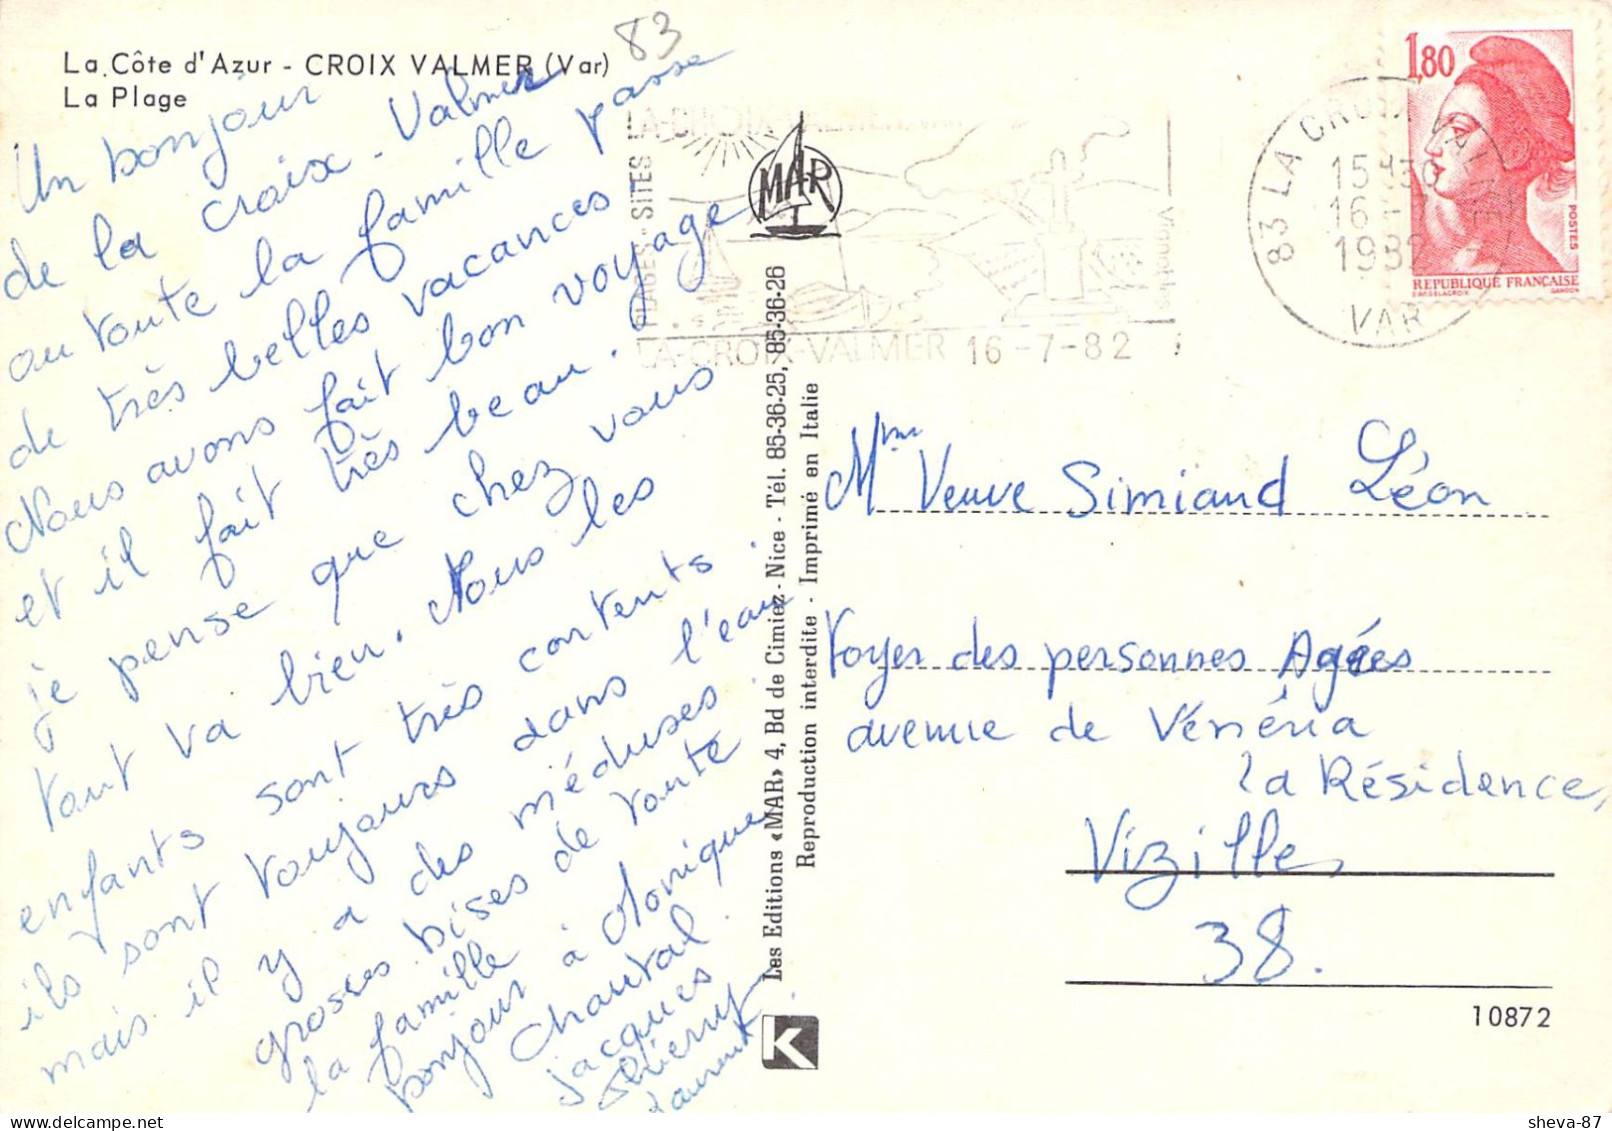 La Côte d'Azur - CROIX VALMER (Var)
La Plage
83
Un bonjour
de la croix-Valmer
ou toute la famille passe
de très belles vacances
Nous avons fait bon voyage
et il fait très beau.
je pense que chez vous
tout va bien. Nous les
enfants sont très contents.
ils sont toujours dans l'eau.
mais il y a des méduses.
grosses bises de toute
la famille
bonjour à Monique
Chantal.
jacques
Thierry
Laurent.
PLAGES - SITES
LA-CROIX-VALMER 16-7-82
Vignobles
MAR
Les Editions «MAR» 4, Bd de Cimiez - Nice - Tél. 85-36-25, 85-36-26
Reproduction interdite - Imprimé en Italie
K
83 LA CROIX VALMER
15H30
16-7
1982
VAR
1,80
POSTES
REPUBLIQUE FRANÇAISE
D'AP. DELACROIX GANDON
Mme Veuve Simiand Léon
Foyer des personnes Agées
avenue de Vénéria
la Résidence,
Vizille,
38.
10872
sheva-87